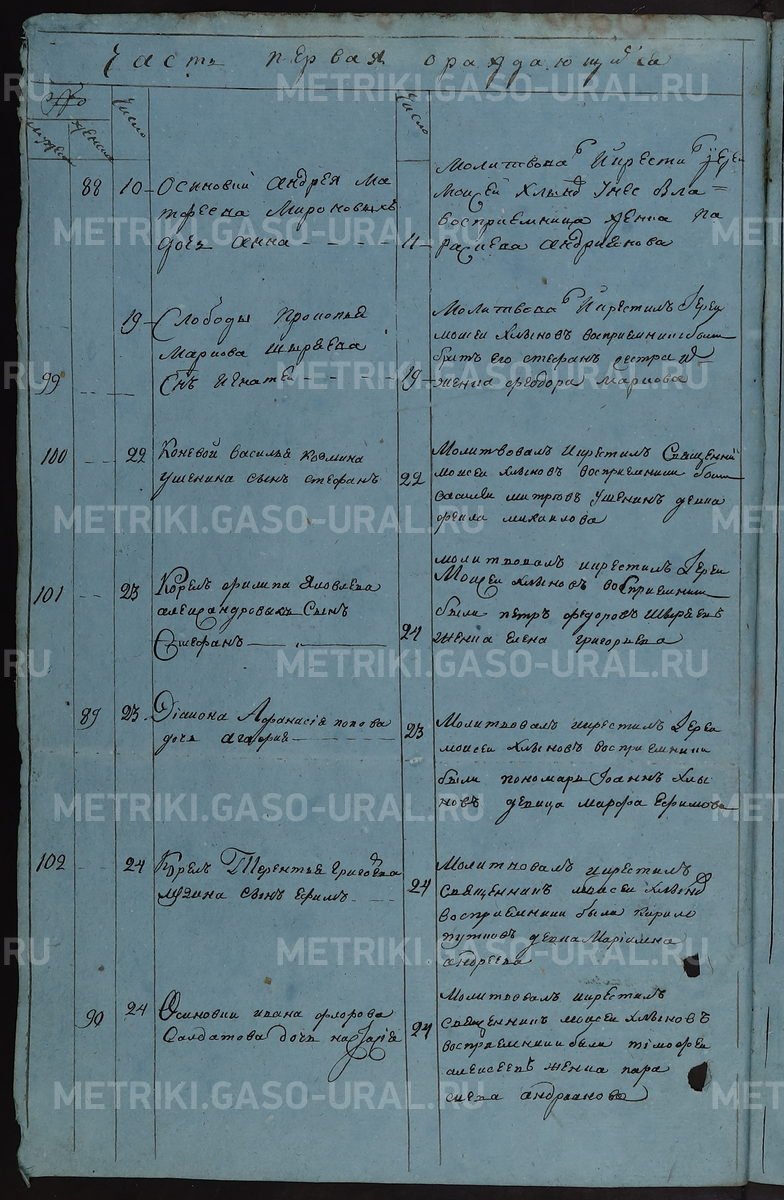 Часть первая ораждающихся
Число
Число
мужеск
женска
88 10 Осиновки Андрея Ма
твеева Мироновыхъ
дочь Анна
11
Молитвова и крести іерей
Моисей Хлын
восприемница женка Па
расковва андриянова
19 Слободы Прокопья
Маркова Шыряева
99 Снъ Игнатей
19
Молитвова и крестилъ Іерей
моисей Хлыновъ восприемники были
братъ его стефанъ сестра
женка феодора Маркова
100 22 Коневой василья козмина
ушенина сынъ стефанъ
22
Молитвовалъ и крестилъ Священник
моисей хлыновъ восприемники были
василеи митревъ Ушенинъ девка
фекла михаилова
101 23 Корелъ филипа Яковлева
александровыхъ Сынъ
Стефанъ
24
молитвовалъ и крестилъ Іереи
Моисеи хлыновъ восприемники
были петръ федоровъ Шыряевъ
женка Елена григорьева
89 23 Діакона Афанасія попова
дочь агафия
23
Молитвовалъ и крестилъ Іереи
моисеи хлыновъ восприемники
были пономарь Іоаннъ Хлы
новъ девица марфа Ефимова
102 24 Корелъ Терентья григорева
сынъ Ефимъ
24
Молитвовалъ и крестилъ
священникъ моисеи хлынов
восприемники были кирило
путковъ девка Маріамна
андреева
90 24 Осиновки ивана флорова
Салдатова дочь настасія
24
Молитвовалъ и крестилъ
священникъ моисеи хлыновъ
восприемники были тимофеи
алексеевъ женка пара
скева андрианова
METRIKI.GASO-URAL.RU